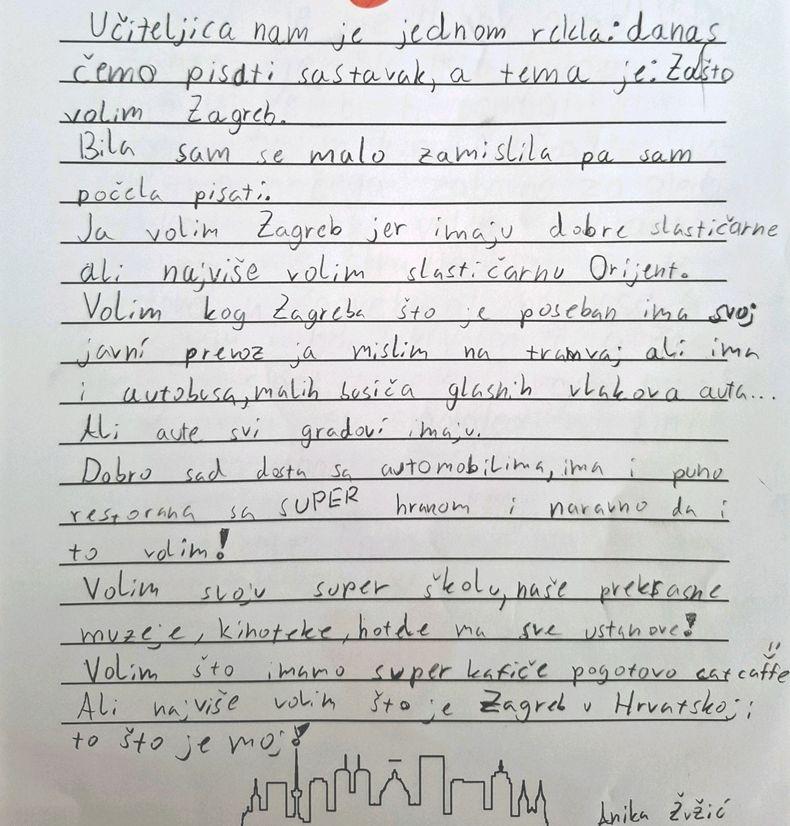 Učiteljica nam je jednom rekla: danas
čemo pisati sastavak, a tema je: Zašto
volim Zagreb.
Bila sam se malo zamislila pa sam
počela pisati.
Ja volim Zagreb jer imaju dobre slastičarne
ali najviše volim slastičarnu Orijent.
Volim kog Zagreba što je poseban ima svoj
javni prevoz ja mislim na tramvaj ali ima
i autobusa, malih busiča glasnih vlakova auta...
Ali aute svi gradovi imaju.
Dobro sad dosta sa automobilima, ima i puno
restorana sa SUPER hranom i naravno da i
to volim!
Volim svoju super školu, naše prekrasne
muzeje, kinoteke, hotele ma sve ustanove!
Volim što imamo super kafiče pogotovo cat caffe
Ali najviše volim što je Zagreb u Hrvatskoj i
to što je moj!
Anika Žvžić